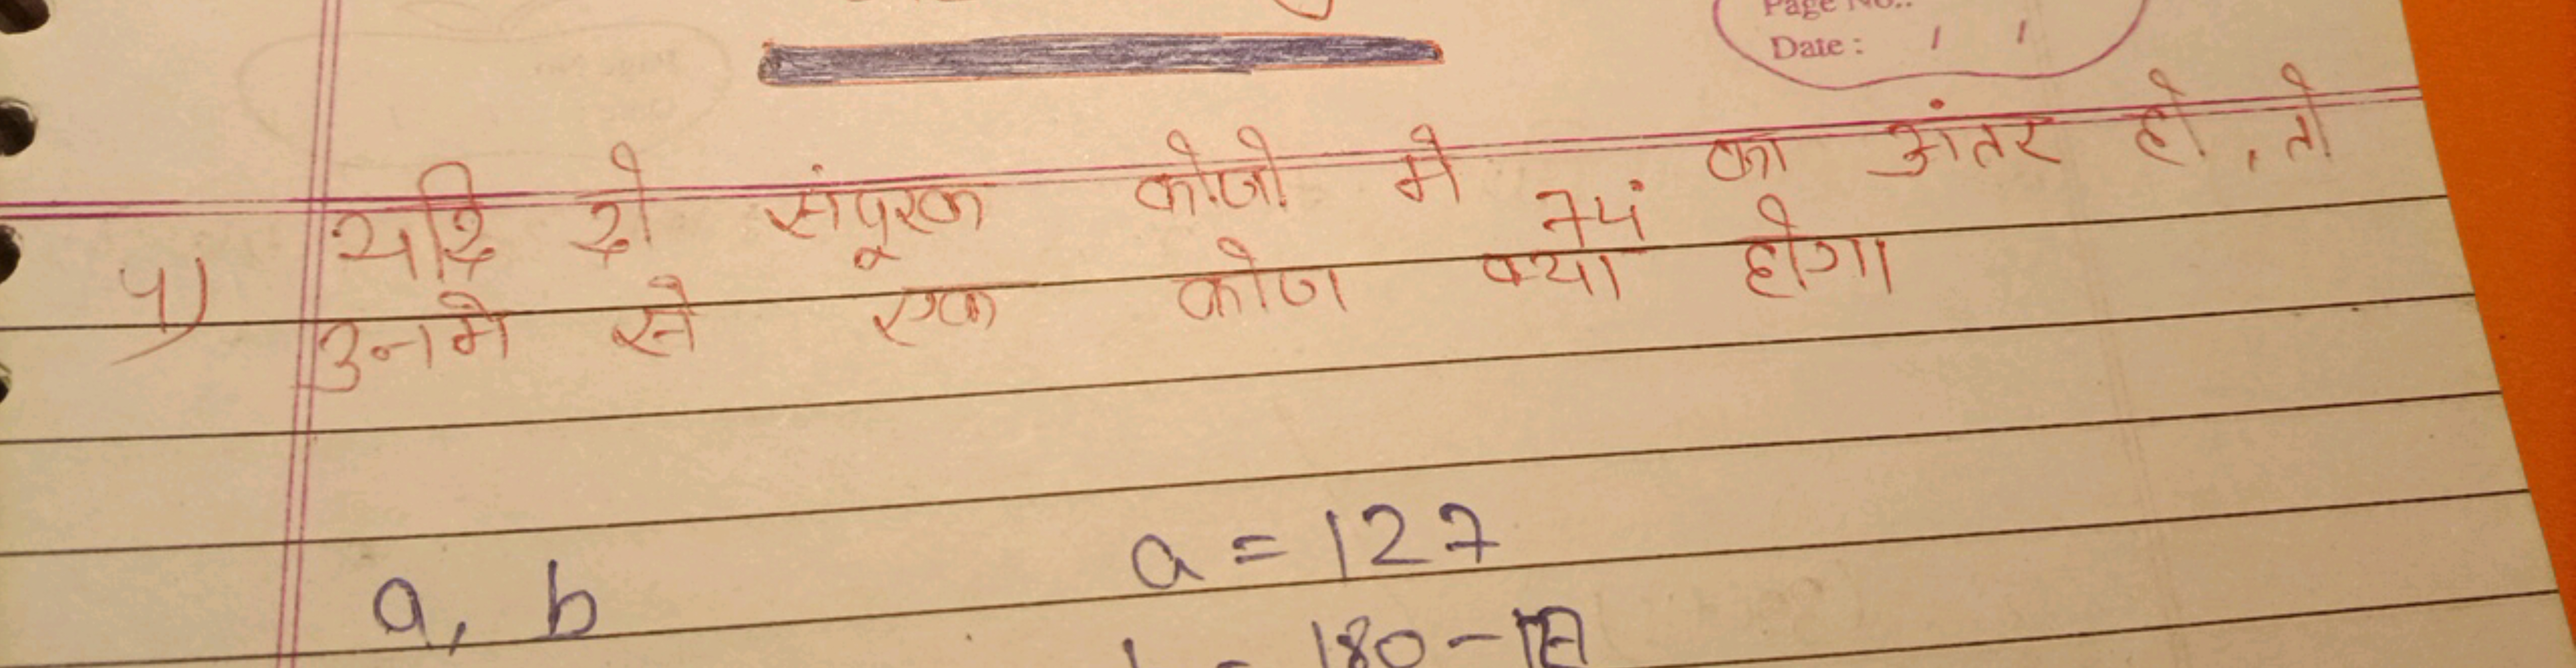 Page No.:
Date : / /
4) यदि दो संपूरक कोणो मे 74° का अंतर हो, तो
उनमे से एक कोण क्या होगा
a, b a = 127
= 180 -